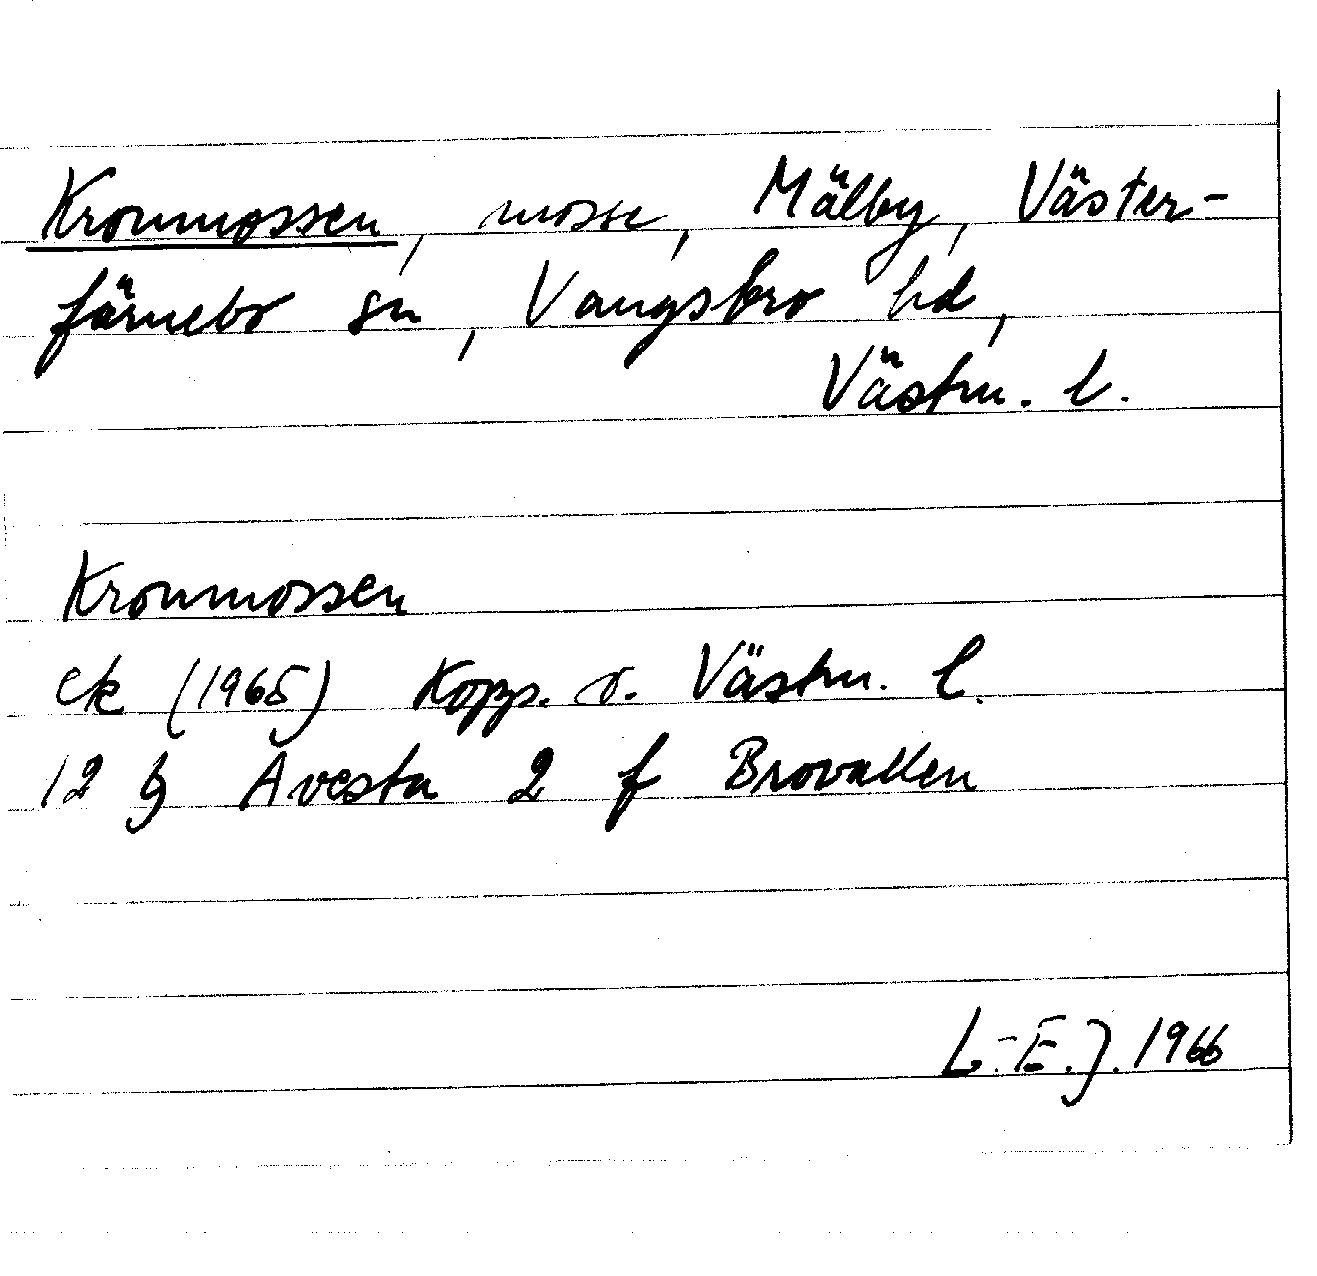 Kronmossen, mosse, Mälby, Väster-
färnebo sn, Vangsbro hd,
Västm. l.
Kronmossen
ek (1965) Kopp. o. Västm. l.
12 g Avesta 2 f Brovallen
L.-E.J. 1966